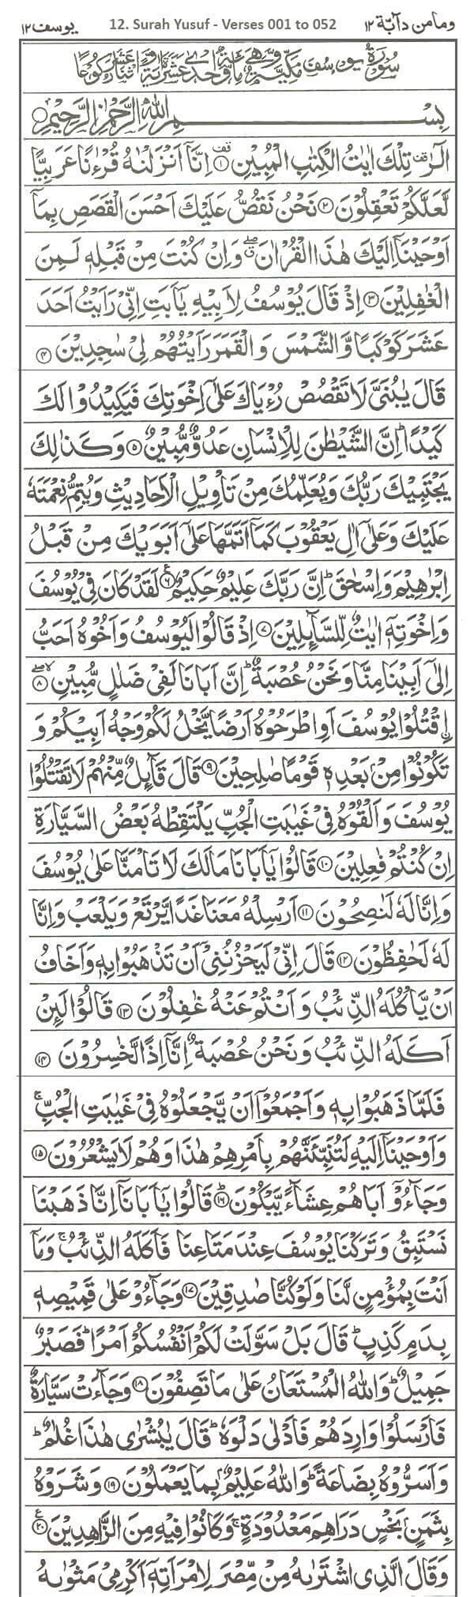 ومامن دآبة ١٢ 12. Surah Yusuf - Verses 001 to 052 يوسف ١٢
بِسْمِ اللهِ الرَّحْمٰنِ الرَّحِيْمِ
الٓرٰ تِلْكَ اٰيٰتُ الْكِتٰبِ الْمُبِيْنِ ۝١ اِنَّآ اَنْزَلْنٰهُ قُرْءٰنًا عَرَبِيًّا
لَّعَلَّكُمْ تَعْقِلُوْنَ ۝٢ نَحْنُ نَقُصُّ عَلَيْكَ اَحْسَنَ الْقَصَصِ بِمَآ
اَوْحَيْنَآ اِلَيْكَ هٰذَا الْقُرْاٰنَ وَاِنْ كُنْتَ مِنْ قَبْلِهٖ لَمِنَ
الْغٰفِلِيْنَ ۝٣ اِذْ قَالَ يُوْسُفُ لِاَبِيْهِ يٰٓاَبَتِ اِنِّيْ رَاَيْتُ اَحَدَ
عَشَرَ كَوْكَبًا وَّالشَّمْسَ وَالْقَمَرَ رَاَيْتُهُمْ لِيْ سٰجِدِيْنَ ۝٤
قَالَ يٰبُنَيَّ لَا تَقْصُصْ رُءْيَاكَ عَلٰٓى اِخْوَتِكَ فَيَكِيْدُوْا لَكَ
كَيْدًا اِنَّ الشَّيْطٰنَ لِلْاِنْسَانِ عَدُوٌّ مُّبِيْنٌ ۝٥ وَكَذٰلِكَ
يَجْتَبِيْكَ رَبُّكَ وَيُعَلِّمُكَ مِنْ تَاْوِيْلِ الْاَحَادِيْثِ وَيُتِمُّ نِعْمَتَهٗ
عَلَيْكَ وَعَلٰٓى اٰلِ يَعْقُوْبَ كَمَآ اَتَمَّهَا عَلٰٓى اَبَوَيْكَ مِنْ قَبْلُ
اِبْرٰهِيْمَ وَاِسْحٰقَ اِنَّ رَبَّكَ عَلِيْمٌ حَكِيْمٌ ۝٦ لَقَدْ كَانَ فِيْ يُوْسُفَ
وَاِخْوَتِهٖٓ اٰيٰتٌ لِّلسَّآئِلِيْنَ ۝٧ اِذْ قَالُوْا لَيُوْسُفُ وَاَخُوْهُ اَحَبُّ
اِلٰٓى اَبِيْنَا مِنَّا وَنَحْنُ عُصْبَةٌ اِنَّ اَبَانَا لَفِيْ ضَلٰلٍ مُّبِيْنٍ ۝٨
اِقْتُلُوْا يُوْسُفَ اَوِ اطْرَحُوْهُ اَرْضًا يَّخْلُ لَكُمْ وَجْهُ اَبِيْكُمْ وَ
تَكُوْنُوْا مِنْ بَعْدِهٖ قَوْمًا صٰلِحِيْنَ ۝٩ قَالَ قَآئِلٌ مِّنْهُمْ لَا تَقْتُلُوْا
يُوْسُفَ وَاَلْقُوْهُ فِيْ غَيٰبَتِ الْجُبِّ يَلْتَقِطْهُ بَعْضُ السَّيَّارَةِ
اِنْ كُنْتُمْ فٰعِلِيْنَ ۝١٠ قَالُوْا يٰٓاَبَانَا مَالَكَ لَا تَاْمَنَّا عَلٰى يُوْسُفَ
وَاِنَّا لَهٗ لَنٰصِحُوْنَ ۝١١ اَرْسِلْهُ مَعَنَا غَدًا يَّرْتَعْ وَيَلْعَبْ وَاِنَّا
لَهٗ لَحٰفِظُوْنَ ۝١٢ قَالَ اِنِّيْ لَيَحْزُنُنِيْٓ اَنْ تَذْهَبُوْا بِهٖ وَاَخَافُ
اَنْ يَّاْكُلَهُ الذِّئْبُ وَاَنْتُمْ عَنْهُ غٰفِلُوْنَ ۝١٣ قَالُوْا لَئِنْ
اَكَلَهُ الذِّئْبُ وَنَحْنُ عُصْبَةٌ اِنَّآ اِذًا لَّخٰسِرُوْنَ ۝١٤
فَلَمَّا ذَهَبُوْا بِهٖ وَاَجْمَعُوْٓا اَنْ يَّجْعَلُوْهُ فِيْ غَيٰبَتِ الْجُبِّ
وَاَوْحَيْنَآ اِلَيْهِ لَتُنَبِّئَنَّهُمْ بِاَمْرِهِمْ هٰذَا وَهُمْ لَا يَشْعُرُوْنَ ۝١٥
وَجَآءُوْٓ اَبَاهُمْ عِشَآءً يَّبْكُوْنَ ۝١٦ قَالُوْا يٰٓاَبَانَآ اِنَّا ذَهَبْنَا
نَسْتَبِقُ وَتَرَكْنَا يُوْسُفَ عِنْدَ مَتَاعِنَا فَاَكَلَهُ الذِّئْبُ وَمَآ
اَنْتَ بِمُؤْمِنٍ لَّنَا وَلَوْ كُنَّا صٰدِقِيْنَ ۝١٧ وَجَآءُوْ عَلٰى قَمِيْصِهٖ
بِدَمٍ كَذِبٍ قَالَ بَلْ سَوَّلَتْ لَكُمْ اَنْفُسُكُمْ اَمْرًا فَصَبْرٌ
جَمِيْلٌ وَاللهُ الْمُسْتَعَانُ عَلٰى مَا تَصِفُوْنَ ۝١٨ وَجَآءَتْ سَيَّارَةٌ
فَاَرْسَلُوْا وَارِدَهُمْ فَاَدْلٰى دَلْوَهٗ قَالَ يٰبُشْرٰى هٰذَا غُلٰمٌ
وَاَسَرُّوْهُ بِضَاعَةً وَاللهُ عَلِيْمٌ بِمَا يَعْمَلُوْنَ ۝١٩ وَشَرَوْهُ
بِثَمَنٍ بَخْسٍ دَرَاهِمَ مَعْدُوْدَةٍ وَكَانُوْا فِيْهِ مِنَ الزَّاهِدِيْنَ ۝٢٠
وَقَالَ الَّذِي اشْتَرٰىهُ مِنْ مِّصْرَ لِامْرَاَتِهٖٓ اَكْرِمِيْ مَثْوٰىهُ